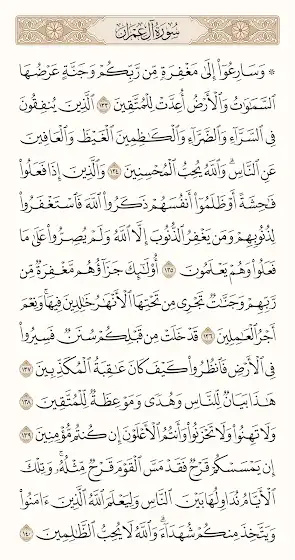 سُورَةُ آلِ عِمْرَانَ
۞ وَسَارِعُوٓا۟ إِلَىٰ مَغْفِرَةٍ مِّن رَّبِّكُمْ وَجَنَّةٍ عَرْضُهَا
ٱلسَّمَٰوَٰتُ وَٱلْأَرْضُ أُعِدَّتْ لِلْمُتَّقِينَ ١٣٣ ٱلَّذِينَ يُنفِقُونَ
فِى ٱلسَّرَّآءِ وَٱلضَّرَّآءِ وَٱلْكَٰظِمِينَ ٱلْغَيْظَ وَٱلْعَافِينَ
عَنِ ٱلنَّاسِ ۗ وَٱللَّهُ يُحِبُّ ٱلْمُحْسِنِينَ ١٣٤ وَٱلَّذِينَ إِذَا فَعَلُوا۟
فَٰحِشَةً أَوْ ظَلَمُوٓا۟ أَنفُسَهُمْ ذَكَرُوا۟ ٱللَّهَ فَٱسْتَغْفَرُوا۟
لِذُنُوبِهِمْ وَمَن يَغْفِرُ ٱلذُّنُوبَ إِلَّا ٱللَّهُ وَلَمْ يُصِرُّوا۟ عَلَىٰ مَا
فَعَلُوا۟ وَهُمْ يَعْلَمُونَ ١٣٥ أُو۟لَٰٓئِكَ جَزَآؤُهُم مَّغْفِرَةٌ مِّن
رَّبِّهِمْ وَجَنَّٰتٌ تَجْرِى مِن تَحْتِهَا ٱلْأَنْهَٰرُ خَٰلِدِينَ فِيهَا ۚ وَنِعْمَ
أَجْرُ ٱلْعَٰمِلِينَ ١٣٦ قَدْ خَلَتْ مِن قَبْلِكُمْ سُنَنٌ فَسِيرُوا۟
فِى ٱلْأَرْضِ فَٱنظُرُوا۟ كَيْفَ كَانَ عَٰقِبَةُ ٱلْمُكَذِّبِينَ ١٣٧
هَٰذَا بَيَانٌ لِّلنَّاسِ وَهُدًى وَمَوْعِظَةٌ لِّلْمُتَّقِينَ ١٣٨
وَلَا تَهِنُوا۟ وَلَا تَحْزَنُوا۟ وَأَنتُمُ ٱلْأَعْلَوْنَ إِن كُنتُم مُّؤْمِنِينَ ١٣٩
إِن يَمْسَسْكُمْ قَرْحٌ فَقَدْ مَسَّ ٱلْقَوْمَ قَرْحٌ مِّثْلُهُۥ ۚ وَتِلْكَ
ٱلْأَيَّامُ نُدَاوِلُهَا بَيْنَ ٱلنَّاسِ وَلِيَعْلَمَ ٱللَّهُ ٱلَّذِينَ ءَامَنُوا۟
وَيَتَّخِذَ مِنكُمْ شُهَدَآءَ ۗ وَٱللَّهُ لَا يُحِبُّ ٱلظَّٰلِمِينَ ١٤٠